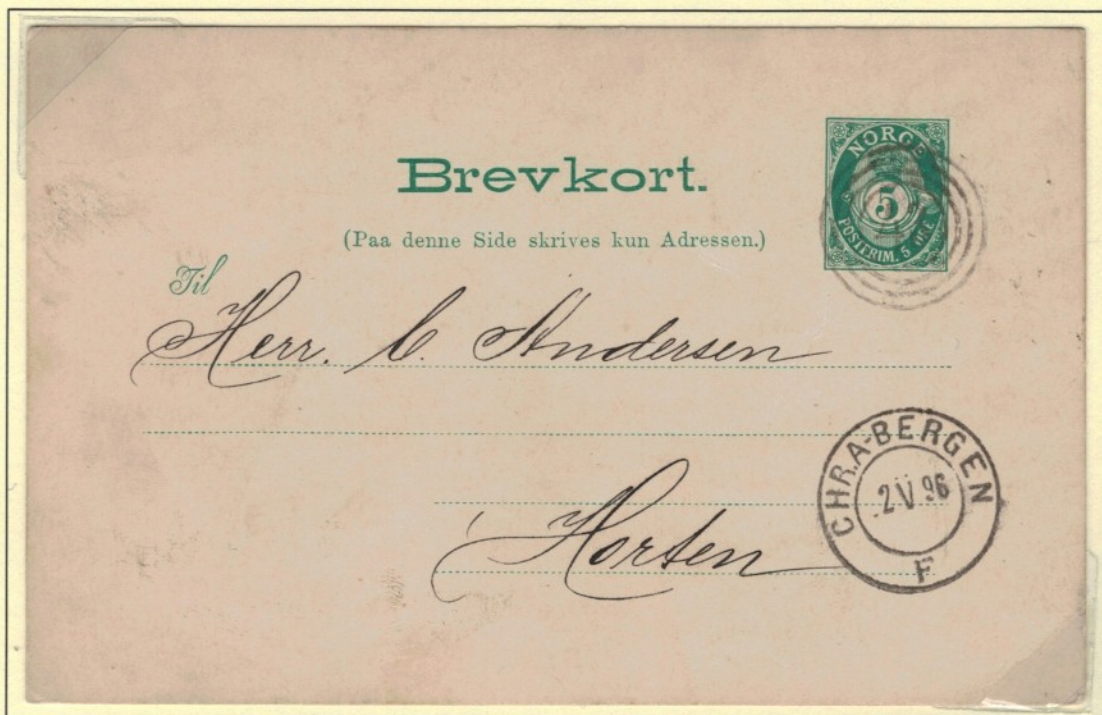 Brevkort.
(Paa denne Side skrives kun Adressen.)
NORGE
5
POSTFRIM. 5 ØRE
Til
Herr. C. Andersen
Horten
CHR.A-BERGEN
2 V 96
F